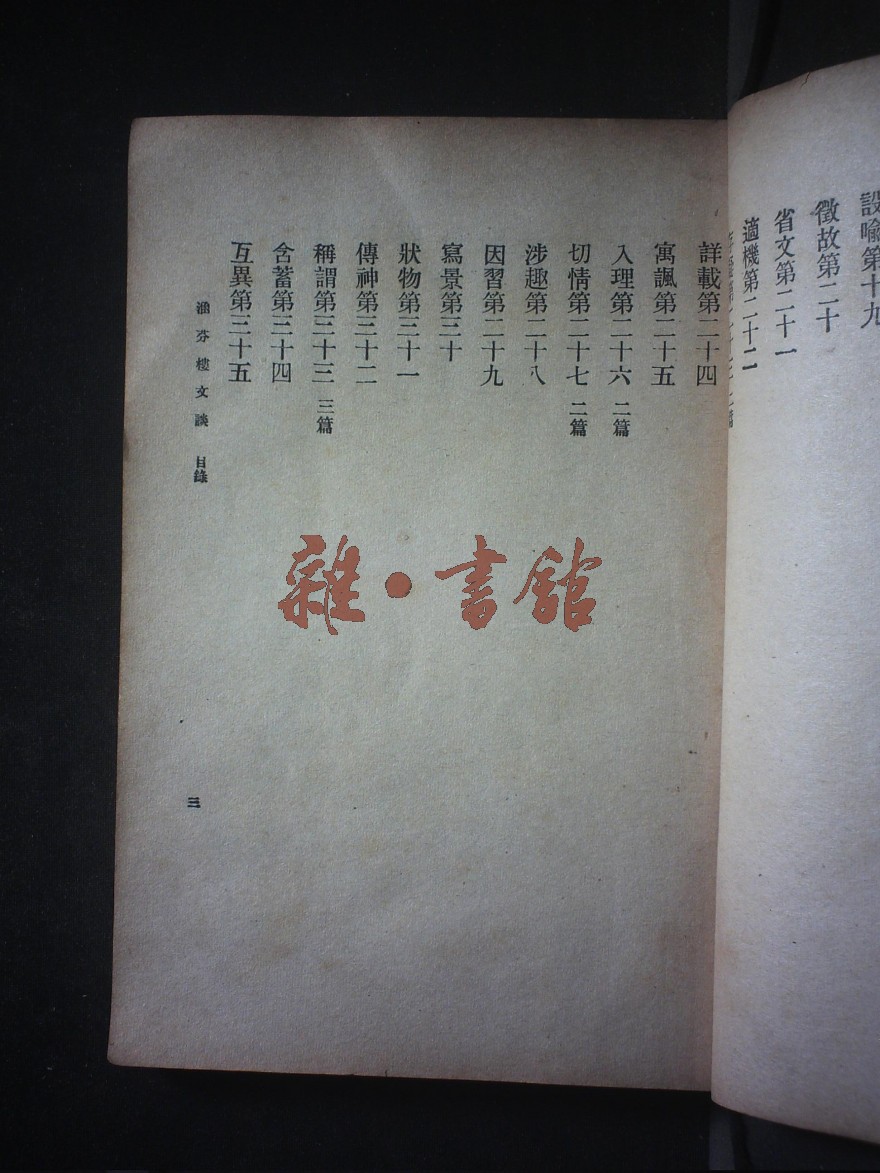 設喩第十九
徵故第二十
省文第二十一
適機第二十二
二篇
詳載第二十四
寓諷第二十五
入理第二十六 二篇
切情第二十七 二篇
涉趣第二十八
因習第二十九
寫景第三十
狀物第三十一
傳神第三十二
稱謂第三十三 三篇
含蓄第三十四
互異第三十五
涵芬樓文談 目錄
三
雜·書館